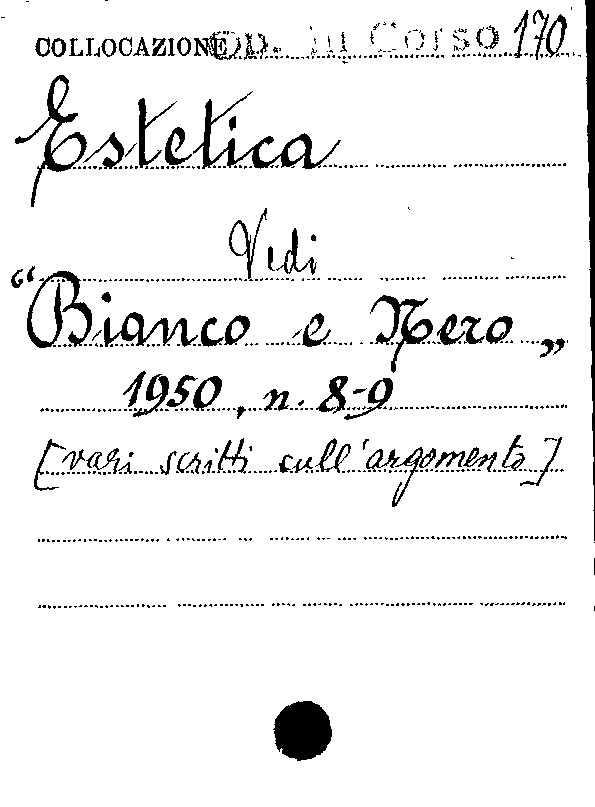 COLLOCAZIONE Op. in Corso 170
Estetica
Vedi
“Bianco e Nero„
1950, n. 8-9
[vari scritti sull'argomento]